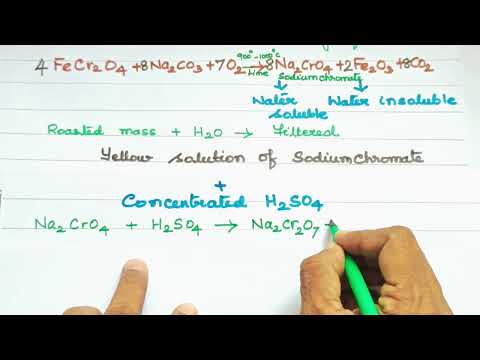 4 FeCr₂O₄ + 8Na₂CO₃ + 7O₂ 900°-1000°C → Lime 8Na₂CrO₄ + 2Fe₂O₃ + 8CO₂
Sodium chromate
Water soluble Water insoluble
Roasted mass + H₂O → Filtered
Yellow solution of Sodium chromate
+
Concentrated H₂SO₄
Na₂CrO₄ + H₂SO₄ → Na₂Cr₂O₇ +